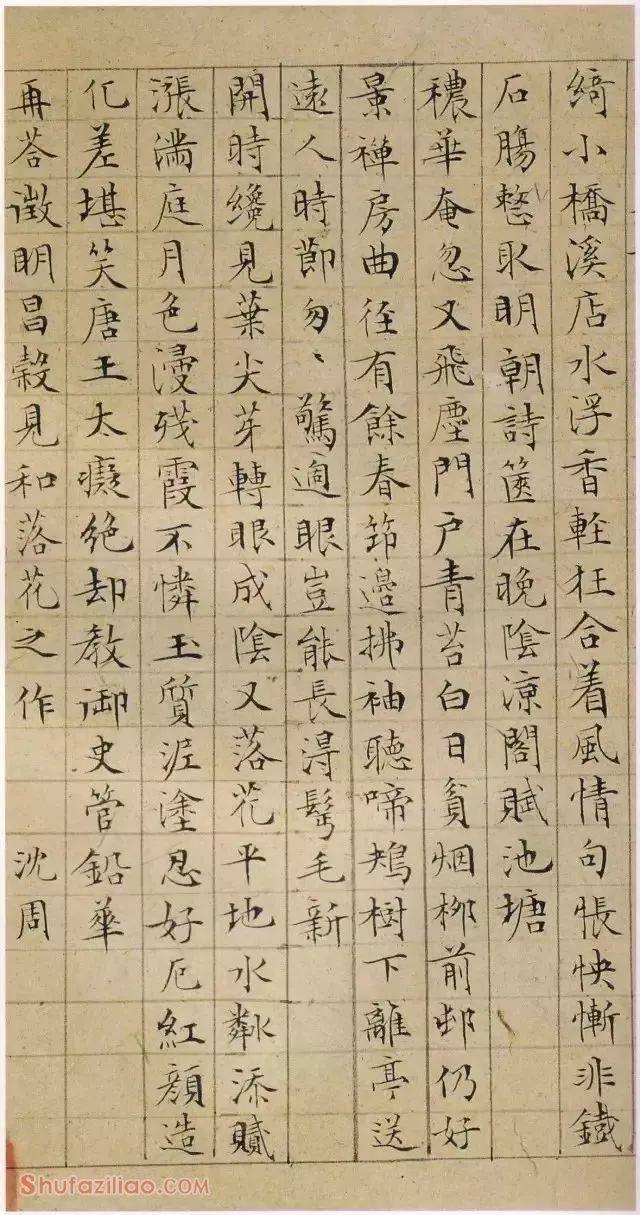 綺小橋溪店水浮香輕狂合着風情句悵怏慚非鐵
石腸整取明朝詩篋在晚陰涼閣賦池塘
穠華奄忽又飛塵門户青苔白日貧烟柳前邨仍好
景禪房曲径有餘春筇邊拂袖聽啼鴂樹下離亭送
遠人時節匆〻驚過眼豈能長得髩毛新
開時纔見葉尖芽轉眼成陰又落花平地水粼添贜
漲滿庭月色漫殘霞不憐玉質泥塗忍好厄紅顔造
化差堪笑唐王太癡绝却教御史管鉛華
再荅徵明昌穀見和落花之作 沈周
Shufaziliao.COM